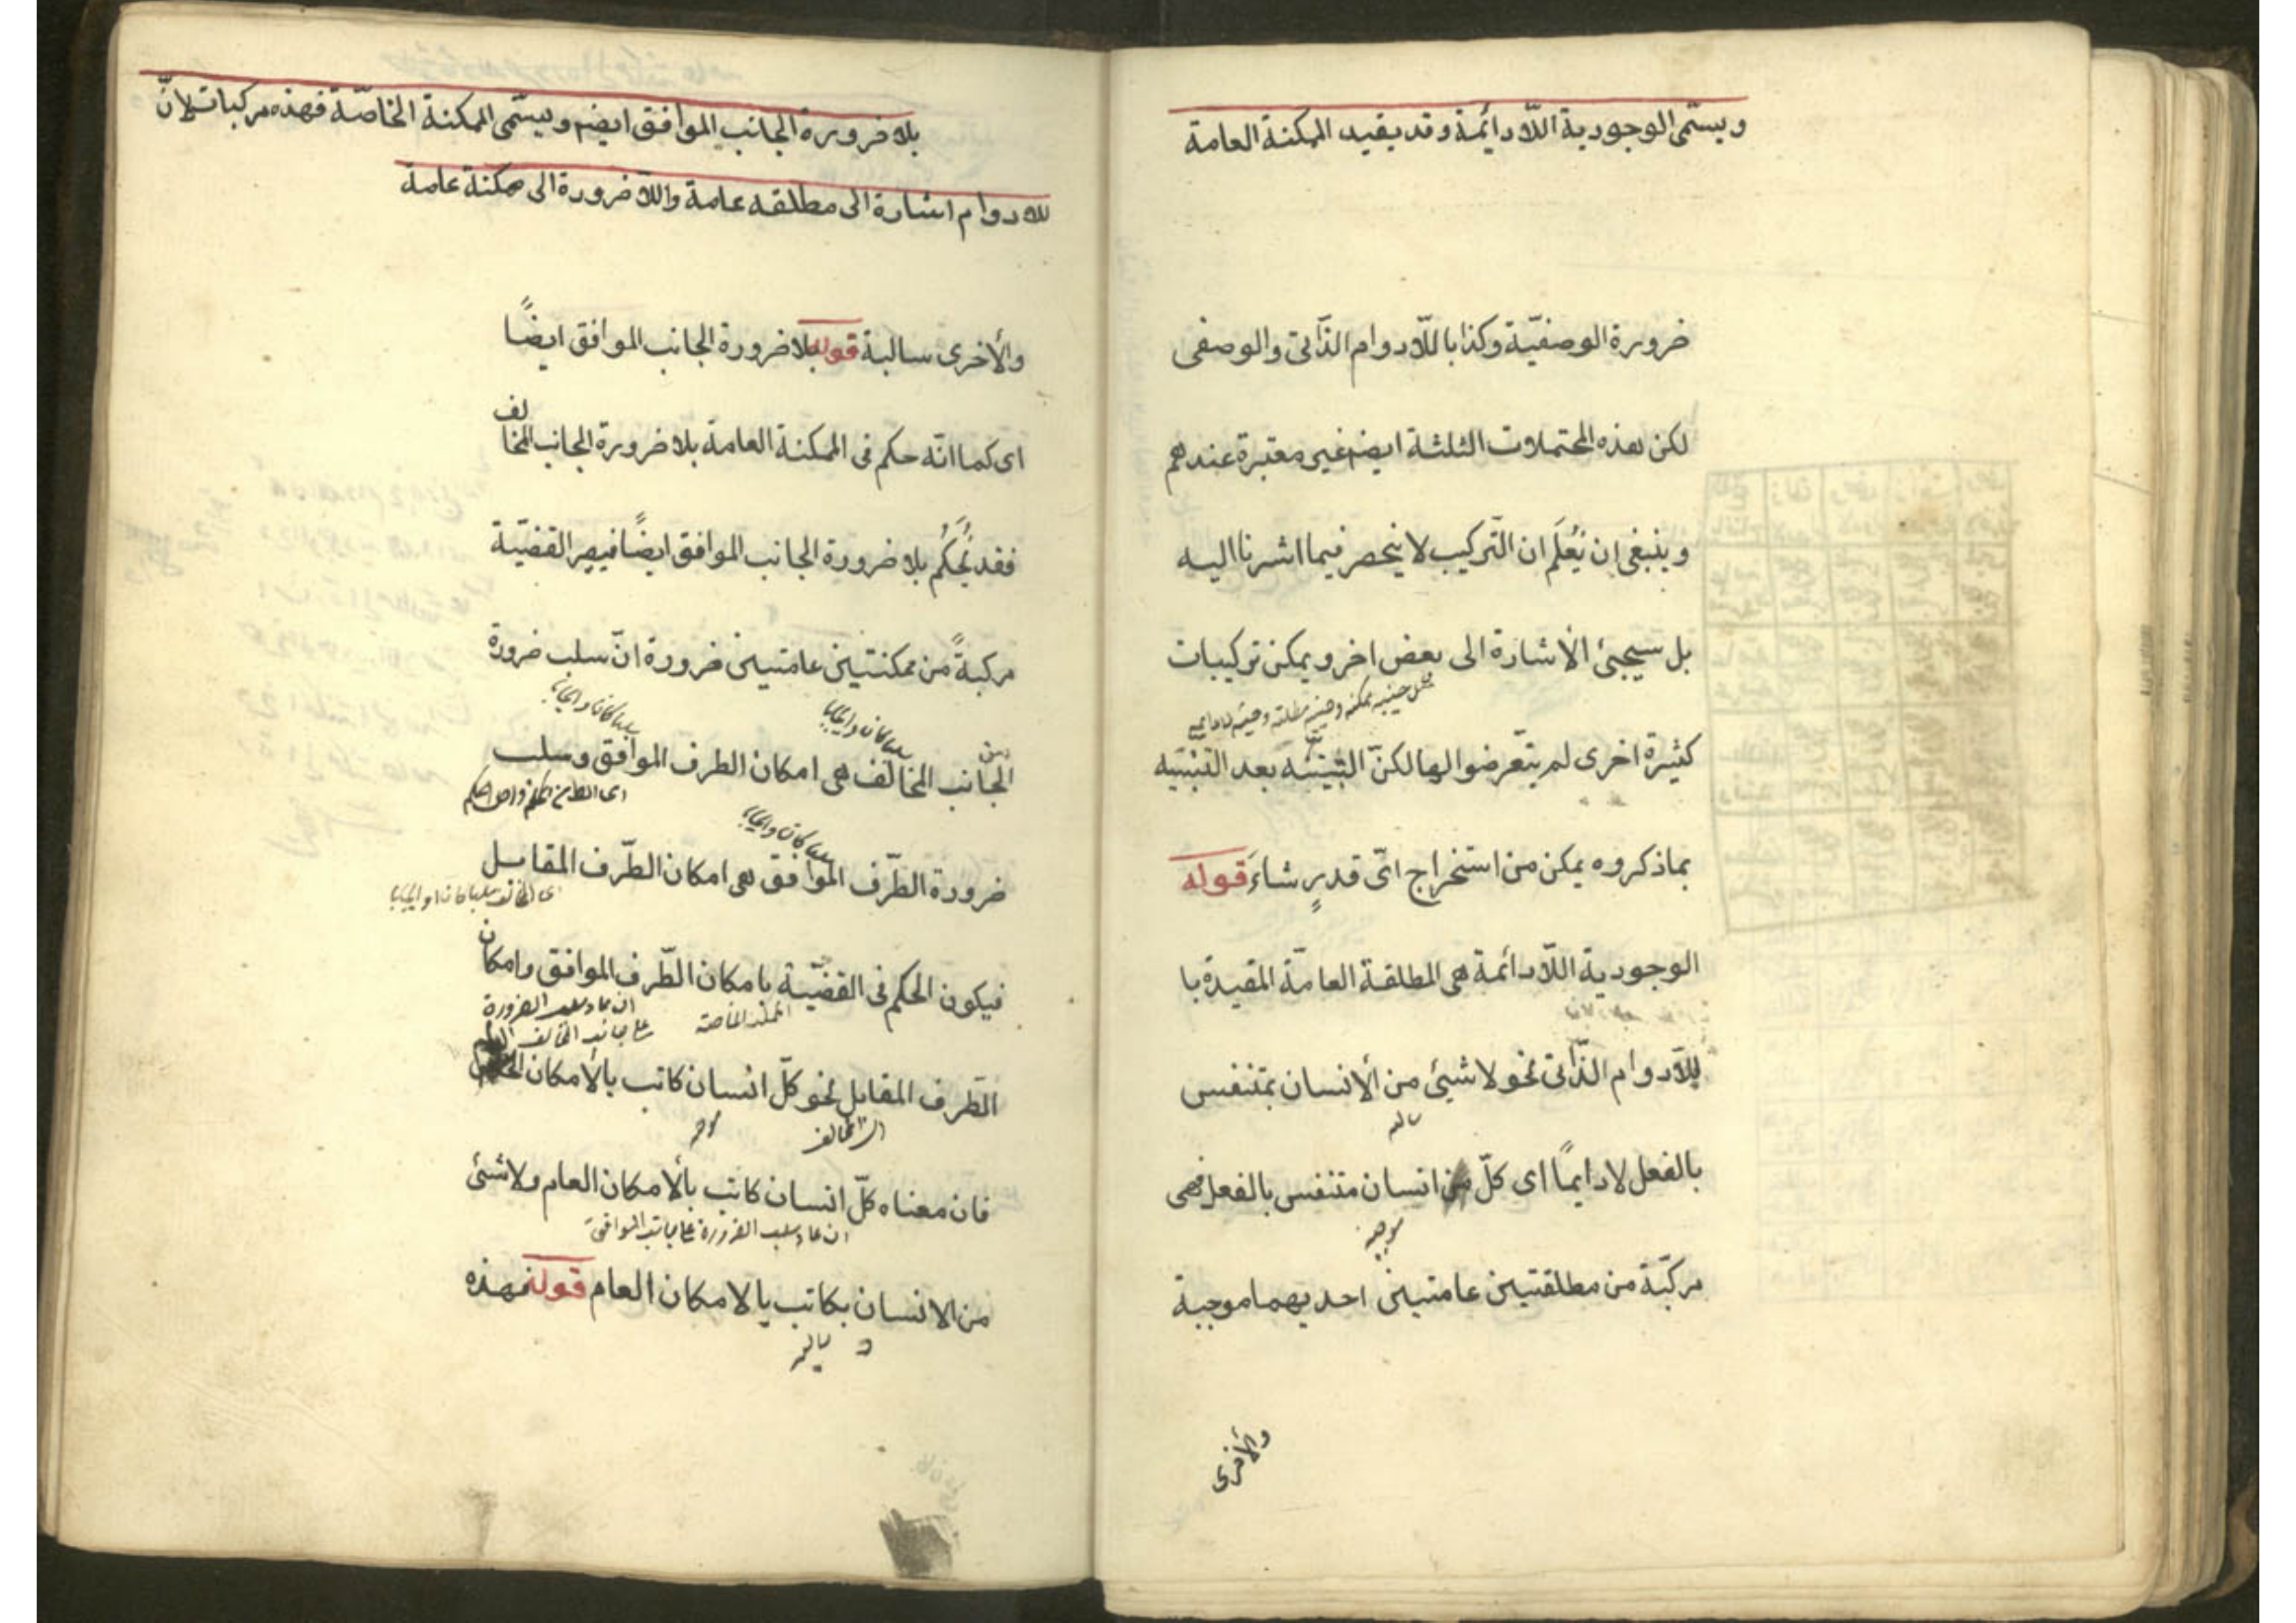 ويسمّى الوجودية اللّادائمة وقد يقيد الممكنة العامة
ضرورة الوصفيّة وكذا باللّادوام الذّاتى والوصفى
لكن هذه المحتملات الثلثة ايضم غير معتبرة عندهم
وينبغى ان يُعْلَم ان التّركيب لا ينحصر فيما اشرنا اليه
بل سيجئ الأشارة الى بعض اخر ويمكن تركيبات
مثل حينيه ممكنه وحينيه مطلقه وحينيه لادايمه
كثيرة اخرى لم يتعّرضوا لها لكنّ التّنبّه بعد التّنبيه
بماذكروه يمكن من استخراج اىّ قدرٍ شاءَ قوله
الوجودية اللّادائمة هى المطلقة العامّة المقيدة با
للّادوام الذّاتى نحو لاشيئ من ألأنسان بمتنفس
سالبه
بالفعل لادايمًا اى كلّ انسان متنفس بالفعل فهى
موجبه
مركبّة من مطلقتين عامتين احديهما موجبة
والأخرى
بلا ضرورة الجانب الموافق ايضم ويسمّى الممكنة الخاصّة فهذه مركبات لانّ
للادوام اشارة الى مطلقه عامة واللّا ضرورة الى ممكنة عامة
والأخرى سالبة قوله بلا ضرورة الجانب الموافق ايضًا
اى كما انّه حكم فى الممكنة العامة بلا ضرورة الجانب المخالف
فقد يُحكَمُ بلا ضرورة الجانب الموافق ايضًا فيصير القضيّة
مركبةً من ممكنتين عامتين ضرورة انّ سلب ضرورة
سلبا كان او ايجابا
سلبا كان او ايجابا
الجانب المخالف هى امكان الطرف الموافق وسلب
سلبا كان او ايجابا
ضرورة الطّرف الموافق هى امكان الطّرف المقابل
اى المخالف سلبا كان او ايجابا
فيكون الحكم فى القضيّة بامكان الطّرف الموافق وامكان
الممكنة الخاصه
الطّرف المقابل نحو كلّ انسان كاتب بألأمكان
اى المخالف
فان معناه كلّ انسان كاتب بألأمكان العام ولاشئ
من الانسان بكاتب بالامكان العام قوله فهذه
سالبه